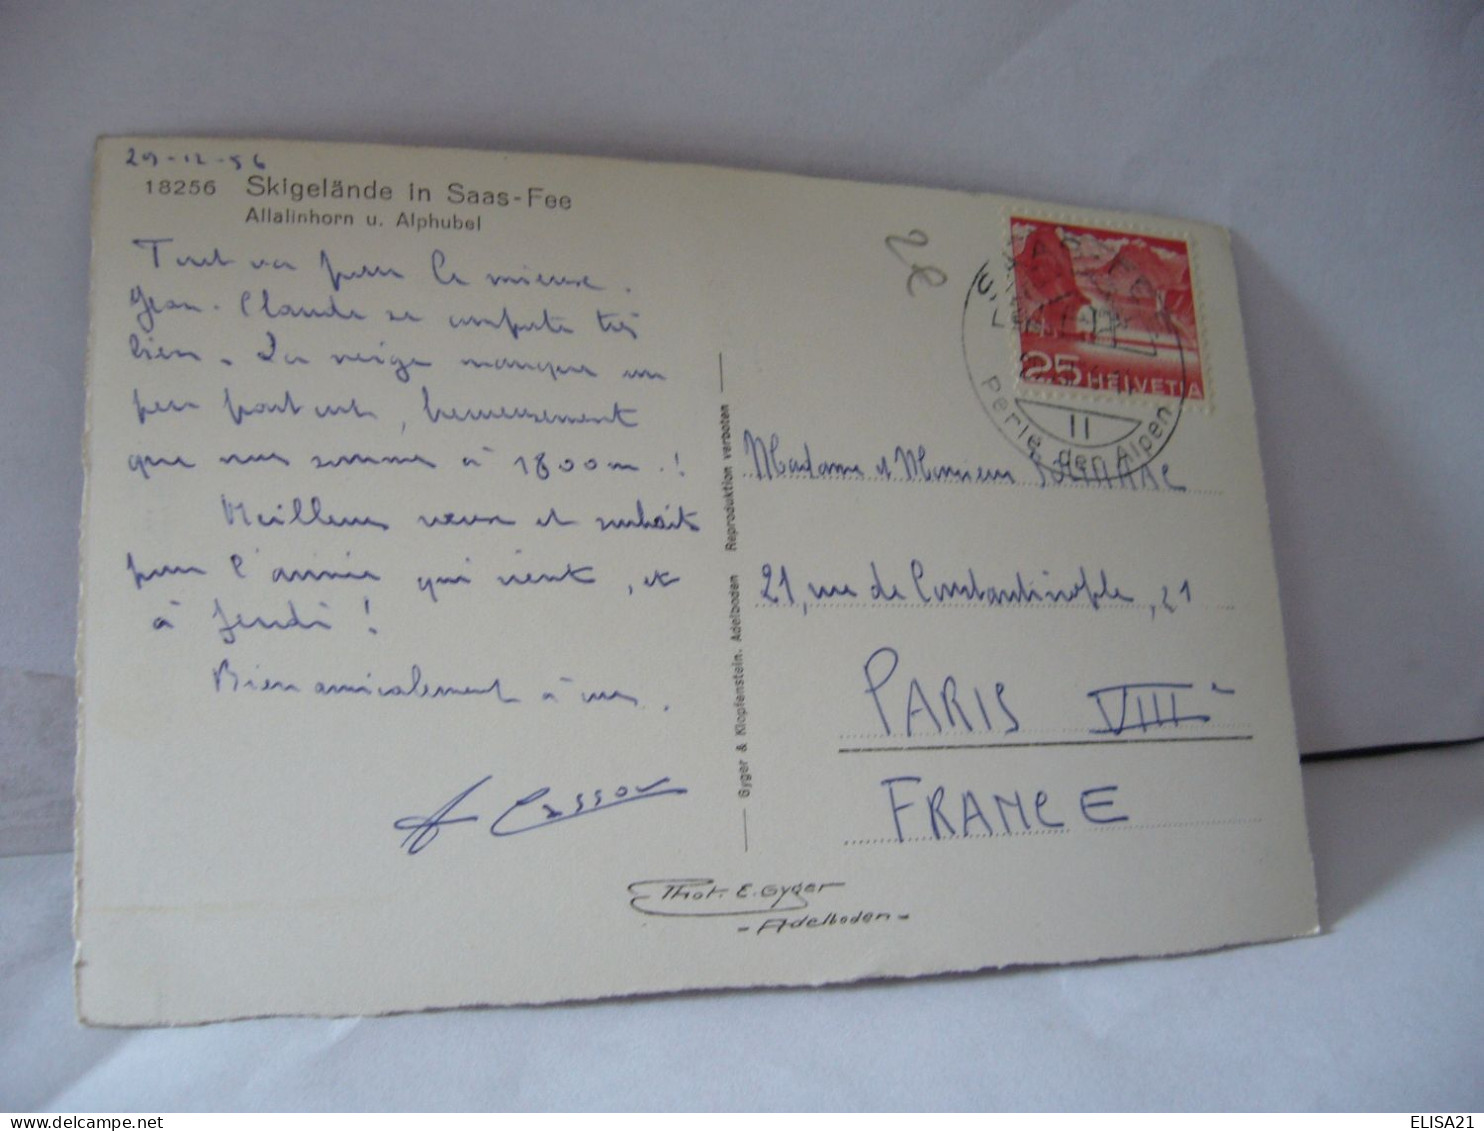 29-12-56
18256 Skigelände in Saas-Fee
Allalinhorn u. Alphubel
Tout va pour le mieux.
Jean-Claude se comporte très
bien. La neige manque un
peu partout, heureusement
que nous sommes à 1800m.!
Meilleurs vœux et souhaits
pour l'année qui vient, et
à Jeudi!
Bien amicalement à vous.
Cassou
Gyger & Klopfenstein, Adelboden Reproduktion verboten
2€
25 HELVETIA
Perle der Alpen
II
Madame et Monsieur
21, rue de Constantinople, 21
PARIS VIIIe
FRANCE
Phot. E. Gyger
- Adelboden -
ELISA21